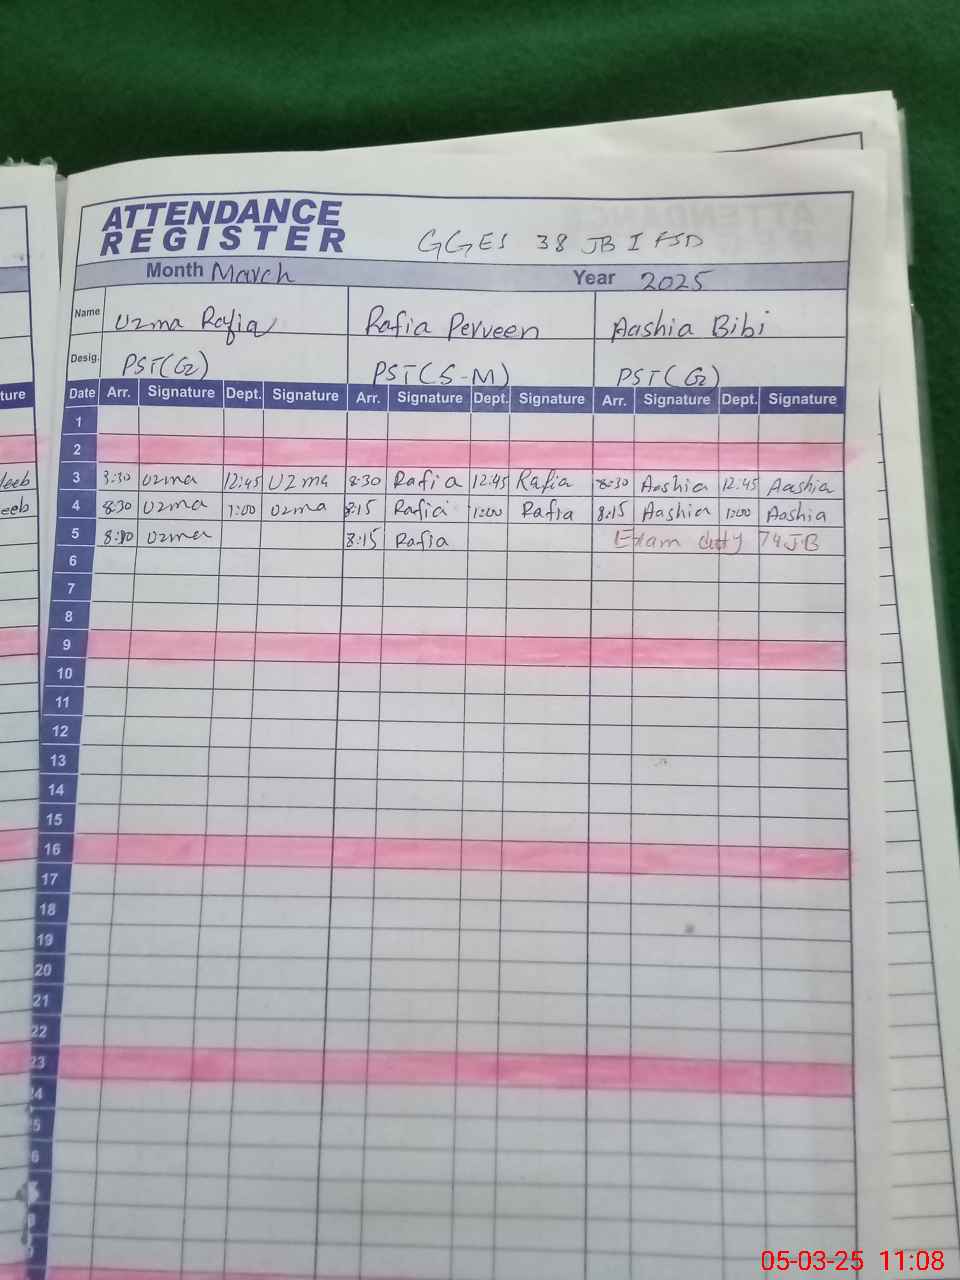 ATTENDANCE
REGISTER
GGES 38 JB I FSD
Month March Year 2025
Name Uzma Rafia Rafia Perveen Aashia Bibi
Desig. PST(G) PST(S-M) PST(G)
ture Date Arr. Signature Dept. Signature Arr. Signature Dept. Signature Arr. Signature Dept. Signature
1
2
leeb 3 8:30 Uzma 12:45 Uzma 8:30 Rafia 12:45 Rafia 8:30 Aashia 12:45 Aashia
eeb 4 8:30 Uzma 1:00 Uzma 8:15 Rafia 1:00 Rafia 8:15 Aashia 1:00 Aashia
5 Uzma 8:15 Rafia Exam duty 74 JB
6
7
8
9
10
11
12
13
14
15
16
17
18
19
20
21
22
23
24
5
6
05-03-25 11:08